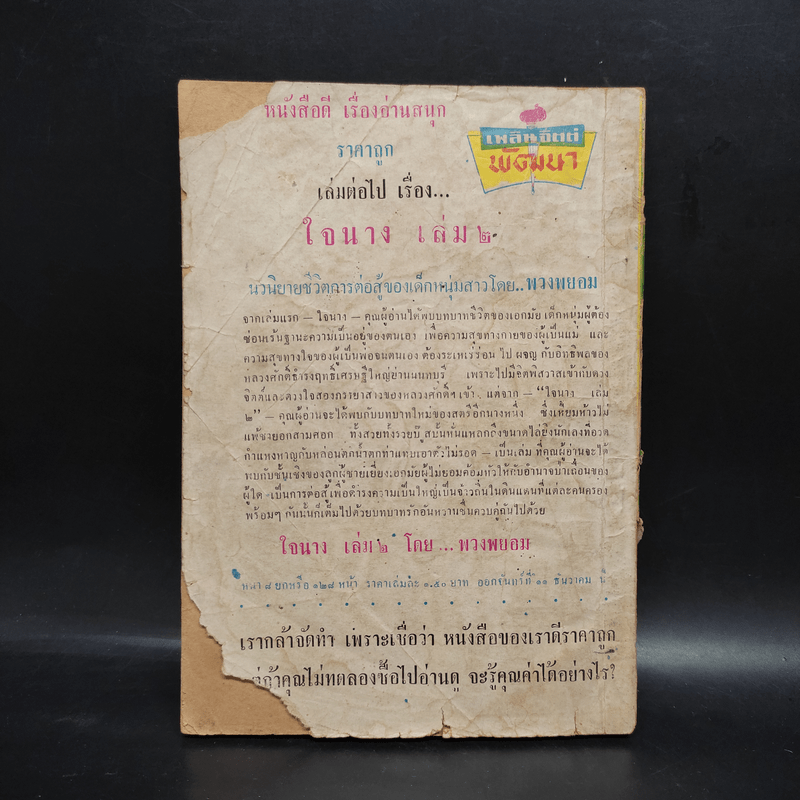 หนังสือดี เรื่องอ่านสนุก
ราคาถูก
เพลินจิตต์
พัฒนา
เล่มต่อไป เรื่อง...
ใจนาง เล่ม ๒
นวนิยายชีวิตการต่อสู้ของเด็กหนุ่มสาวโดย..พวงพยอม
จากเล่มแรก — ใจนาง — คุณผู้อ่านได้พบบทบาทชีวิตของเอกมัย เด็กหนุ่มผู้ต้อง
ซ่อนเร้นฐานะความเป็นอยู่ของตนเอง เพื่อความสุขทางกายของผู้เป็นแม่ และ
ความสุขทางใจของผู้เป็นพ่อจนตนเอง ต้องระเหเร่ร่อน ไป ผจญ กับอิทธิพลของ
หลวงศักดิ์ธำรงฤทธิ์เศรษฐีใหญ่ย่านนนทบุรี เพราะไปมีจิตพิสวาสเข้ากับดวง
จิตต์และดวงใจสองภรรยาสาวของหลวงศักดิ์ฯ เข้า แต่จาก — "ใจนาง เล่ม
๒" — คุณผู้อ่านจะได้พบกับบทบาทใหม่ของสตรีอีกนางหนึ่ง ซึ่งเหี้ยมห้าวไม่
แพ้ชายอกสามศอก ทั้งสวยทั้งรวยบู๊สบั้นหั่นแหลกถึงขนาดไล่ยิงนักเลงที่อวด
กำแหงหาญกับหล่อนตกน้ำตกท่าแทบเอาตัวไม่รอด — เป็นเล่ม ที่คุณผู้อ่านจะได้
พบกับชั้นเชิงของลูกผู้ชายเยี่ยงเอกมัยผู้ไม่ยอมค้อมหัวให้กับอำนาจป่าเถื่อนของ
ผู้ใด เป็นการต่อสู้เพื่อดำรงความเป็นใหญ่เป็นจ้าวถิ่นในดินแดนที่แต่ละคนครอง
พร้อมๆ กันนั้นก็เต็มไปด้วยบทบาทรักอันหวานชื่นควบคู่กันไปด้วย
ใจนาง เล่ม ๒ โดย ... พวงพยอม
หนา ๘ ยกหรือ ๑๒๘ หน้า ราคาเล่มละ ๑.๕๐ บาท ออกจันทร์ที่ ๑๑ ธันวาคม นี้
เรากล้าจัดทำ เพราะเชื่อว่า หนังสือของเราดีราคาถูก
ถ้าคุณไม่ทดลองซื้อไปอ่านดู จะรู้คุณค่าได้อย่างไร?